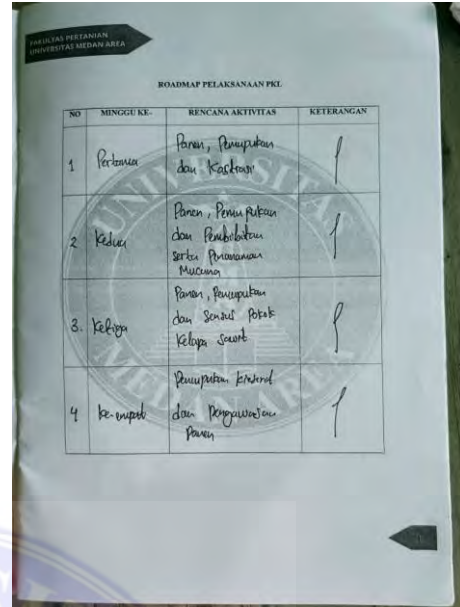 FAKULTAS PERTANIAN
UNIVERSITAS MEDAN AREA
ROADMAP PELAKSANAAN PKL
NO MINGGU KE- RENCANA AKTIVITAS KETERANGAN
1 Pertama Panen, Pemupukan
dan Kastrasi
2 Kedua Panen, Pemupukan
dan Pembibitan
serta Penanaman
Mucuna
3. Ketiga Panen, Pemupukan
dan Sensus Pokok
Kelapa Sawit
4 ke-empat Pemupukan
dan Pengawasan
Panen
UNIVERSITAS
MEDAN AREA